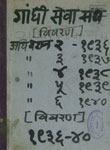 गांधी सेवा संघ
[विवरण]
२ - १९३६
" ३ - १९३७
" ४ - १९३८
" ५ - १९३९
" ६ - १९४०
[विवरण]
१९३६-४०